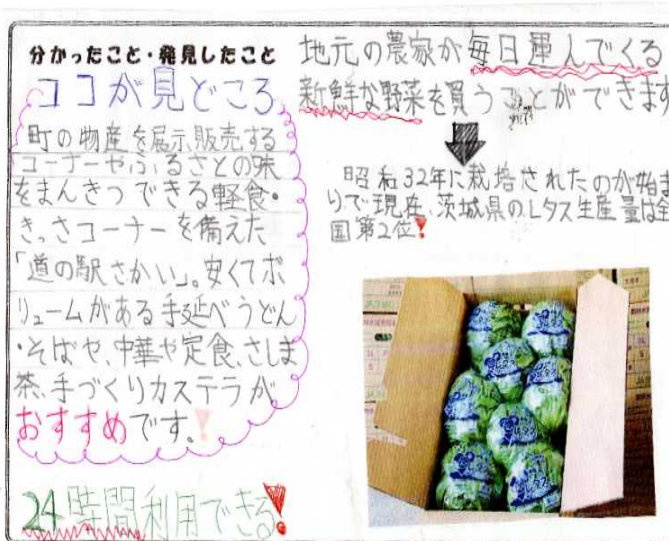 分かったこと・発見したこと
ココが見どころ
町の物産を展示、販売する
コーナーやふるさとの味
をまんきつできる軽食・
きっさコーナーを備えた
「道の駅さかい」。安くてボ
リュームがある手延べうどん
・そばや、中華や定食、さしま
茶、手づくりカステラが
おすすめです。!
24時間利用できる!
地元の農家が毎日運んでくる
新鮮な野菜を買うことができます
昭和32年に栽培されたのが始ま
りで現在、茨城県のレタス生産量は全
国第2位!